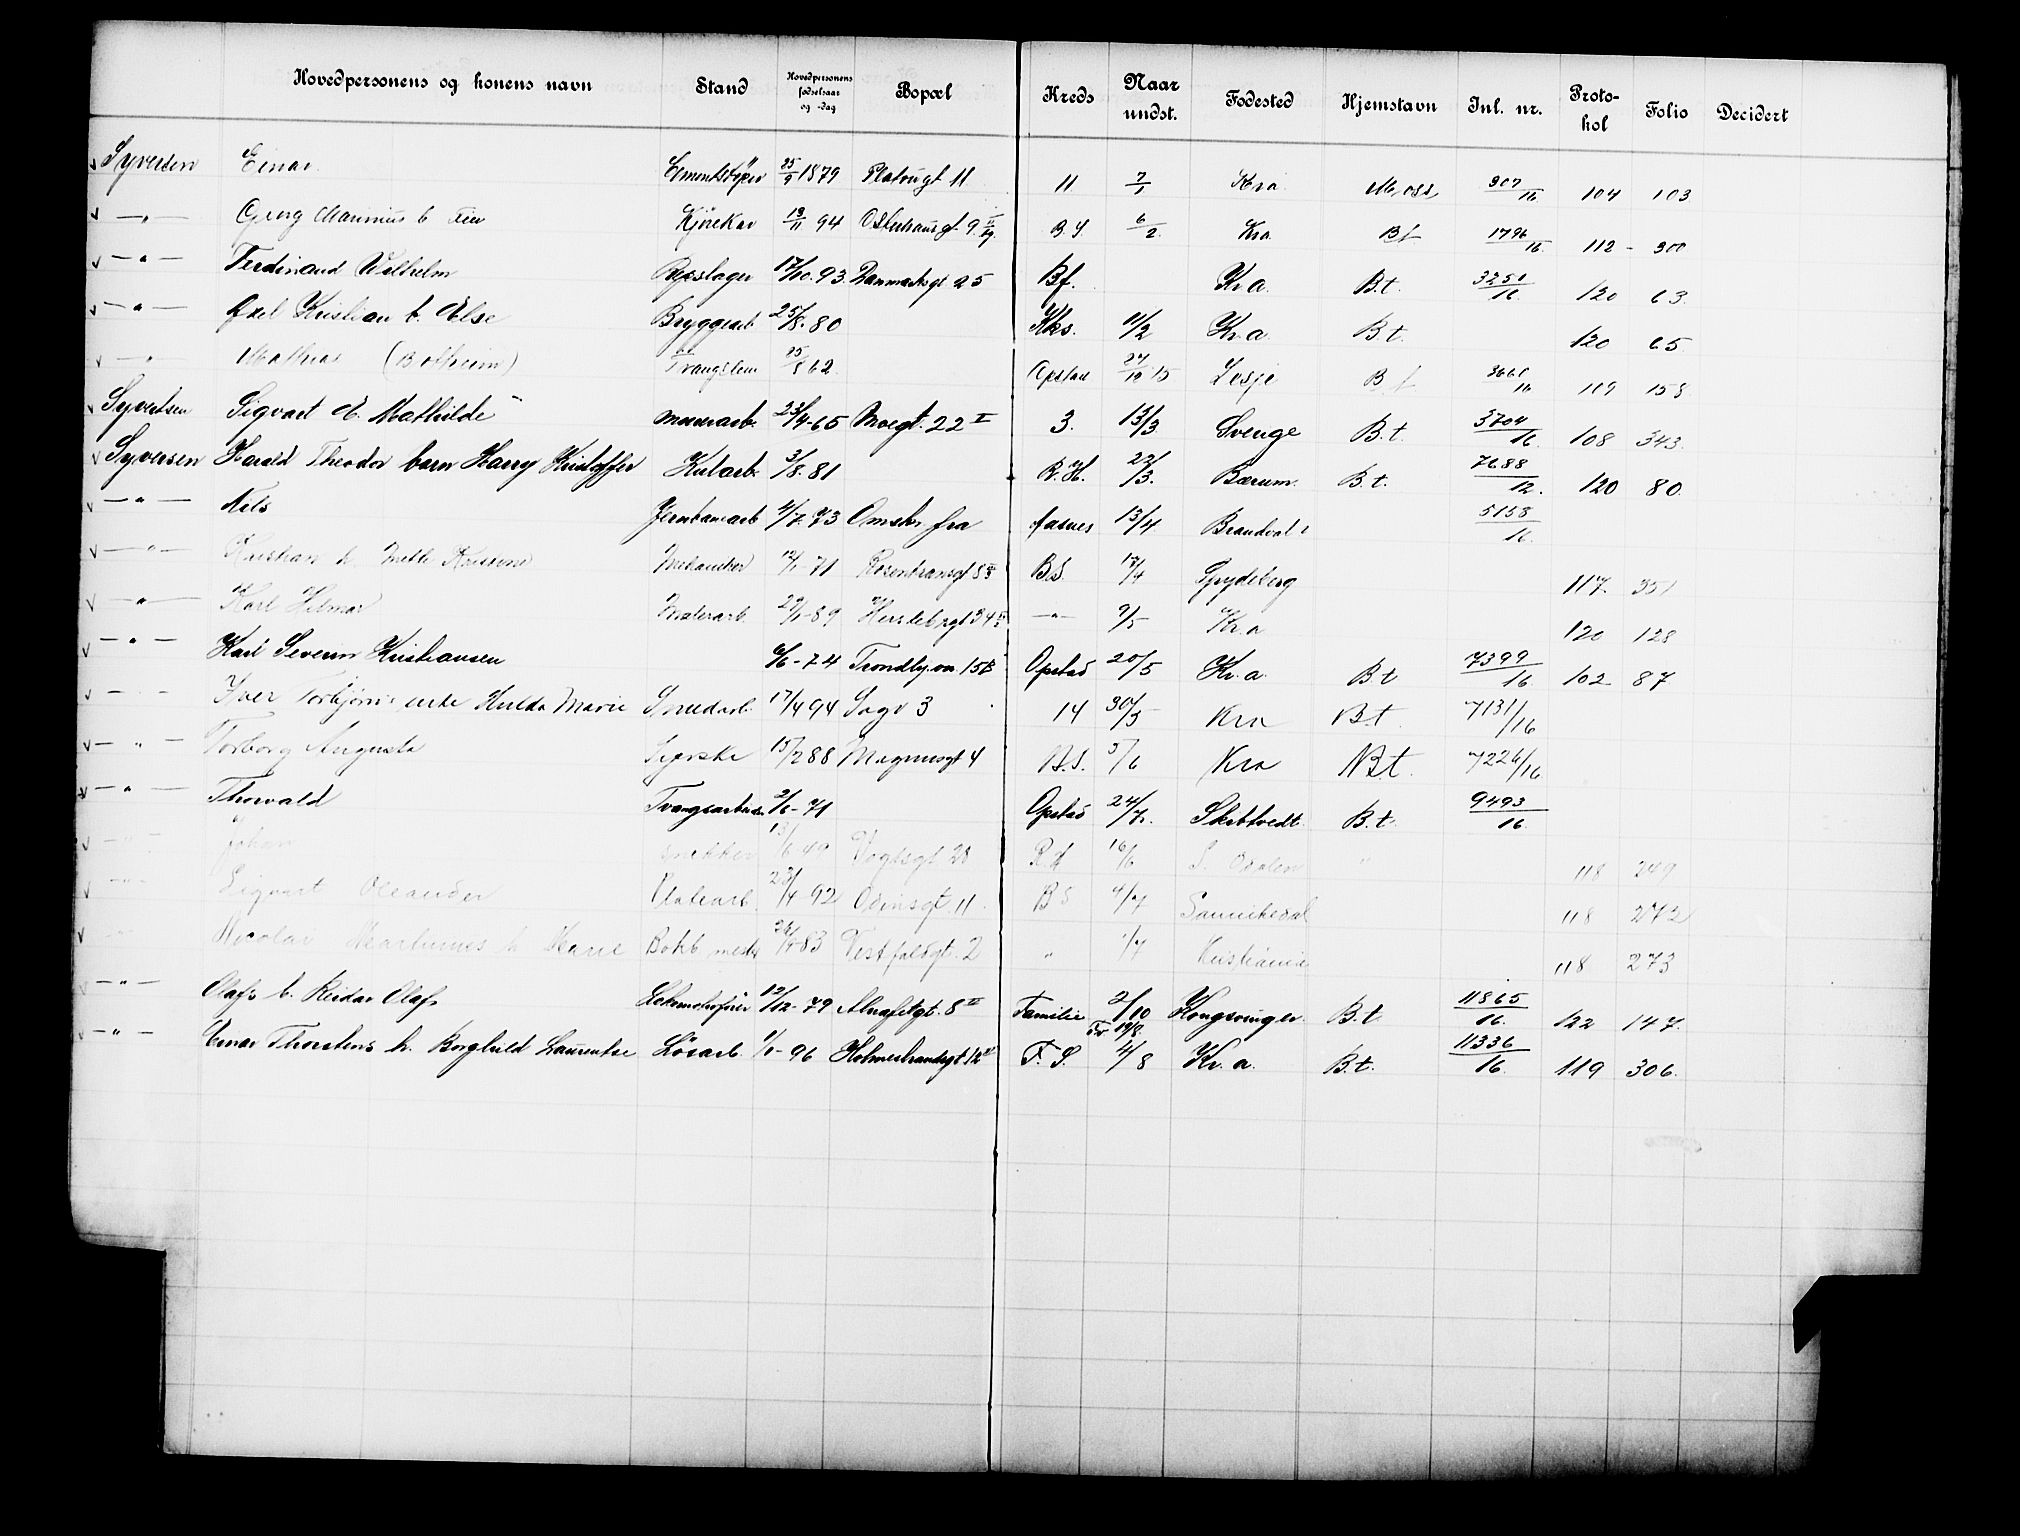 Hovedpersonens og konens navn Stand Hovedpersonens fødselsaar og -dag Bopæl Kreds Naar undst. Fødested Hjemstavn Inl. nr. Protokol Folio Decidert
Syversen Einar 25/9 1879 Platougt 11 11 7/1 Kra Moss 307/16 104 103
— " — Georg Marinius Kjørekar 13/11 94 6/2 Kra Bt 1796/16 112 - 300
— " — Ferdinand Vilhelm Repslager 17/10. 93. Danmarksgt 25 Bf. Kr.a. B.t. 3251/16 120 63
— " — Axel Kristian b. Else Bryggearb 25/8. 80 Kks. 11/2 Kr.a. B.t. 120 65
— " — Mathias (Botheim) Tvangslem 25/8 62 Opstad 27/10 15 Lesje 3661/16 119 158
Syvertsen Sigvart Mathilde murerarb. 23/4-65 Moegt. 22 II 3. 13/3 Sverige B.t. 3704/16 108 343
Syversen Harald Theodor barn Harry Kristoffer Kularb. 3/8. 81 R.H. 22/3. Bærum B.t. 7688/12. 120 80.
— " — Nils Jernbanearb 4/7. 73 Omstr. fra Aasnes 13/4 Brandval 5158/16
— " — Kristian h. Mekaniker 12/1-71 B.S. 17/4 Spydeberg 117. 351
— " — Karl Hilmar Malerarb. 29/1-89 Herslebsgt 34 — " — 9/5 Kr.a 120 128
— " — Karl Severin Kristiansen 6/6-74 Trondhj.vn. 15 B Opstad 20/5 Kr.a. B.t 7399/16. 102 87
— " — Iver Torbjørn Hulda Marie Smedarb. 17/4 94 Sagv 3 14 30/5 Kra B.t. 7131/16
— " — Torborg Augusta Syerske 15/7 88 Magnusgt 4 B.S. 5/6 Kra B.t. 7226/16
— " — Thorvald Tvangsarbeid. 2/6-71 Opstad 24/7. Skibtvedt B.t. 9493/16
— " — Johan snekker 13/6 49 Vogtsgt 28 16/6 S. Odalen " 118 249
— " — Sigvart Oleander 23/4-92 Odinsgt 11 B S 4/7 Sannikedal 118 272
" Nicolai Martinius h Marie 83 Vestfoldgt. 2 " 1/7 Kristiania 118 273
— " — Olafs b. Reidar Olafs 12/12-79 Alnafetgt. 8 II Familie 2/10 Kongsvinger B.t. 11865/16. 122 147.
— " — Einar Thorstens h. Borghild Laurentse Løsarb. 1/1-96 Holmestrandsgt. F.S. 4/8 Kr.a. B.t. 11336/16. 119 306.